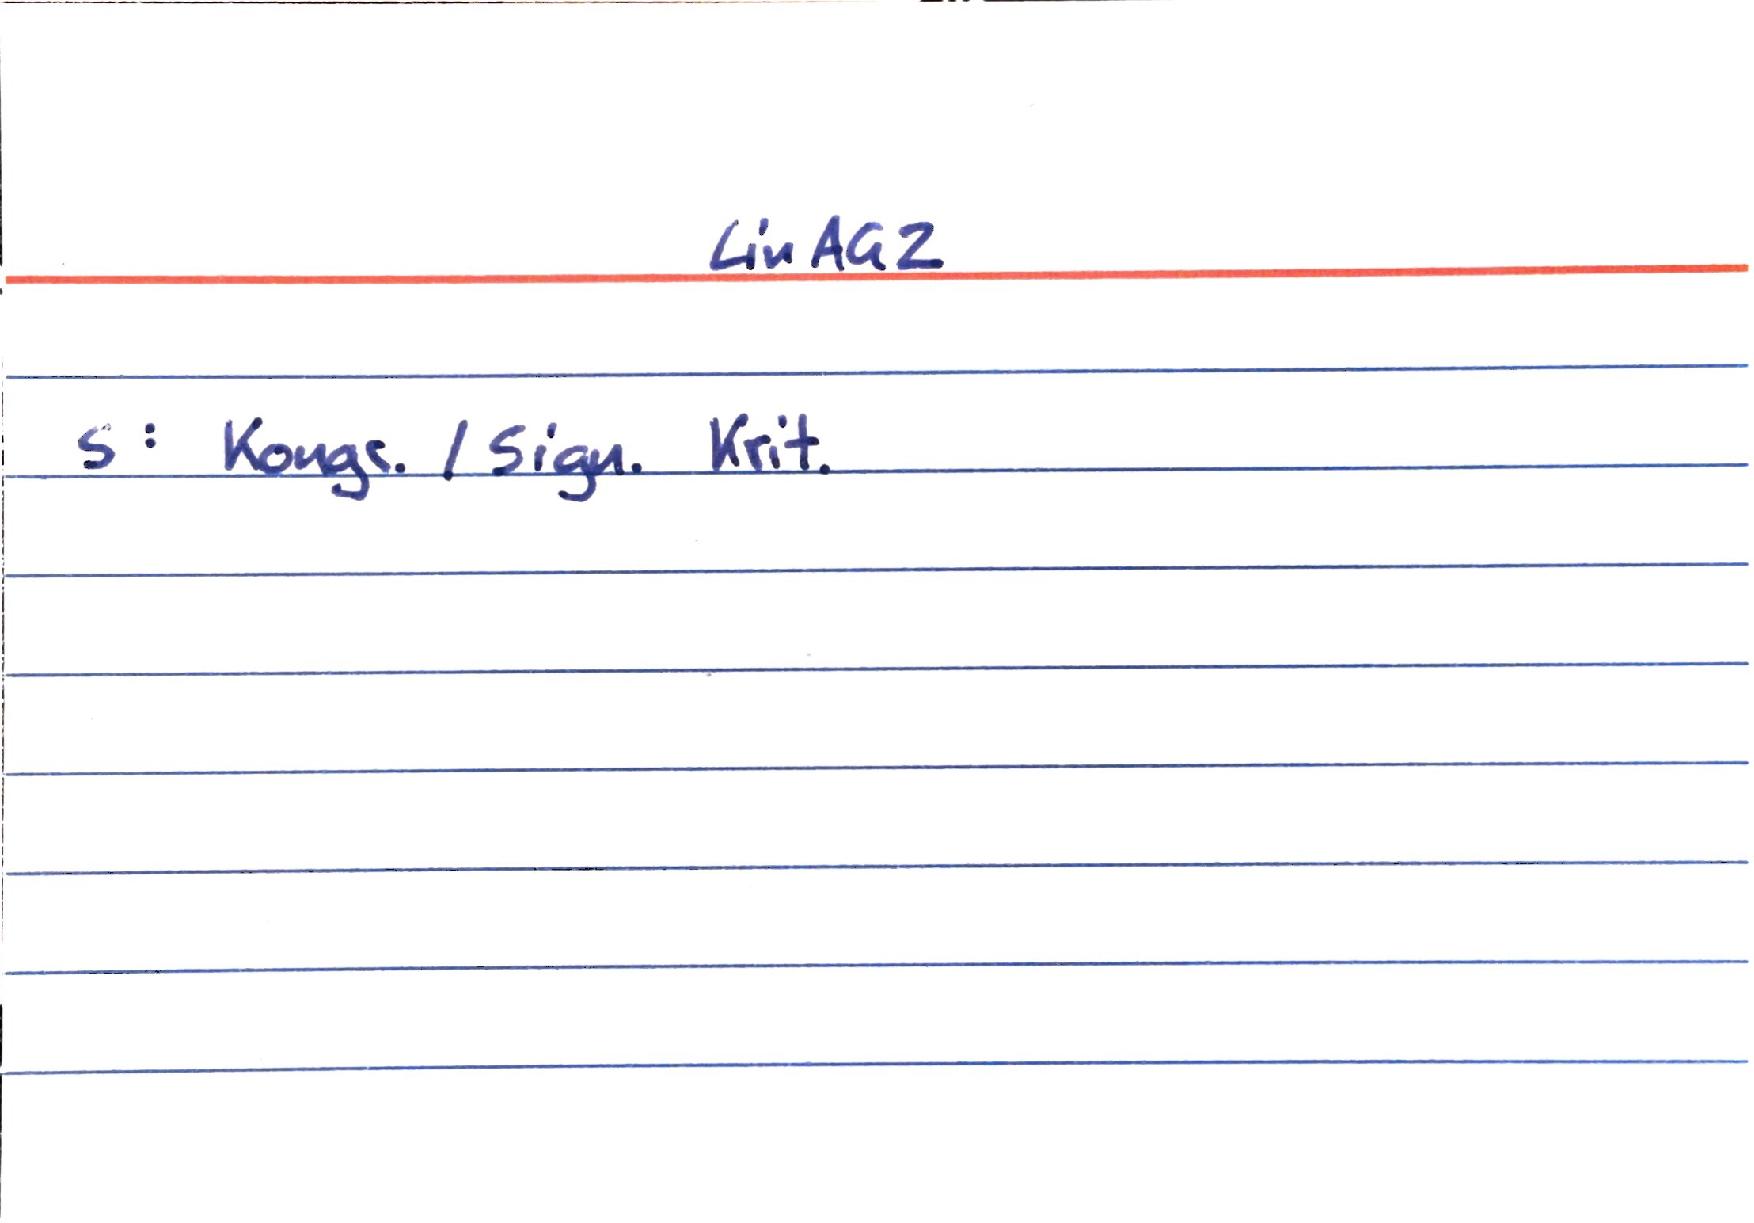 LinAG2
S: Kongr. / Sign. Krit.